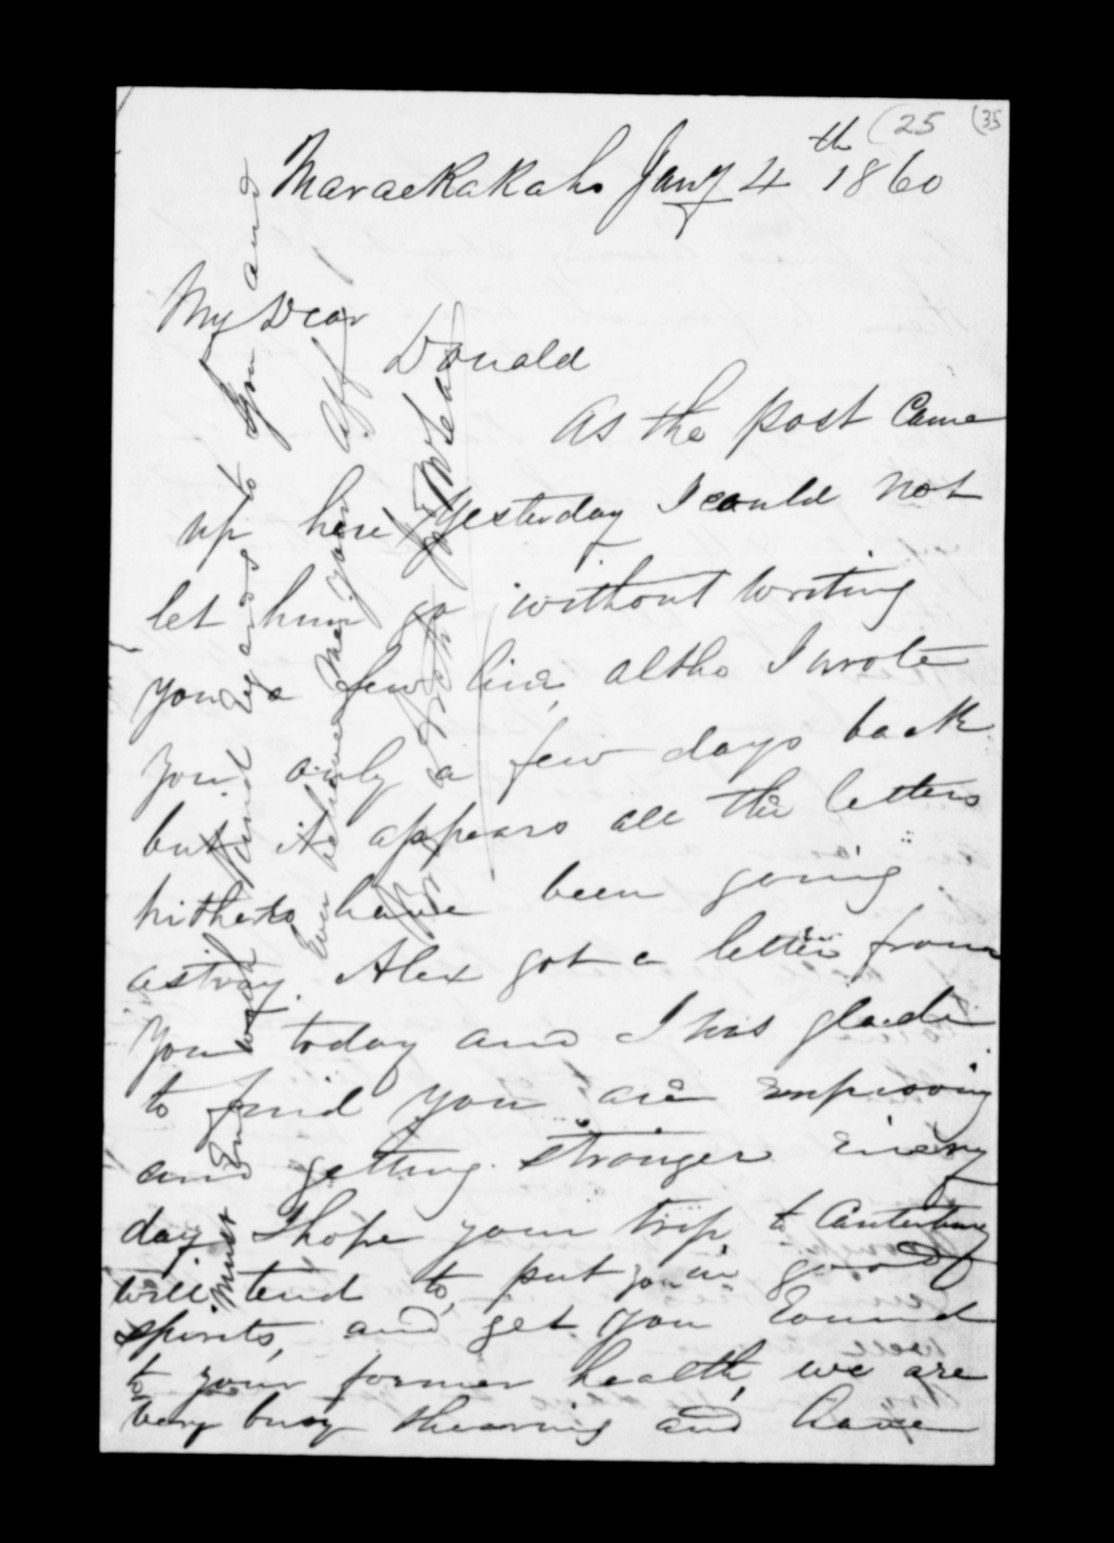 (25 (35
Maraekakaho Jany 4th 1860
My Dear
Donald
As the post came
up here yesterday I could not
let him go without writing
you a few line, altho I wrote
you only a few days back
but it appears all the letters
hitherto have been going
astray. Alex got a letter from
you today and I was glade
to find you are improving
and getting stronger every
day I hope your trip to Canterbury
will tend to put you in good
spirits, and get you round
to your former health, we are
very busy shearing and have
must End with kind regards to you and
Ever believe me your aff
Brother
McLean